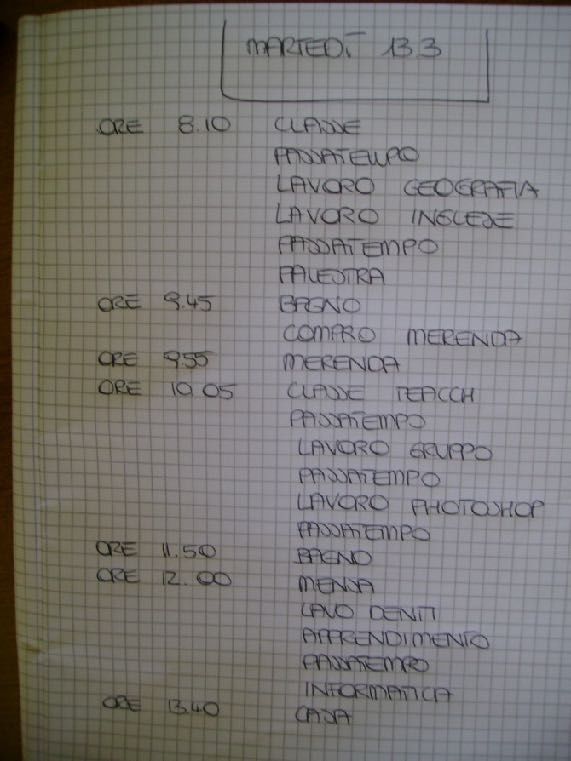 MARTEDÌ 13.3
ORE 8.10 CLASSE
PASSATEMPO
LAVORO GEOGRAFIA
LAVORO INGLESE
PASSATEMPO
PALESTRA
ORE 9.45 BAGNO
COMPRO MERENDA
ORE 9.55 MERENDA
ORE 10.05 CLASSE TEACCH
PASSATEMPO
LAVORO GRUPPO
PASSATEMPO
LAVORO PHOTOSHOP
PASSATEMPO
ORE 11.50 BAGNO
ORE 12.00 MENSA
LAVO DENTI
APPRENDIMENTO
PASSATEMPO
INFORMATICA
ORE 13.40 CASA